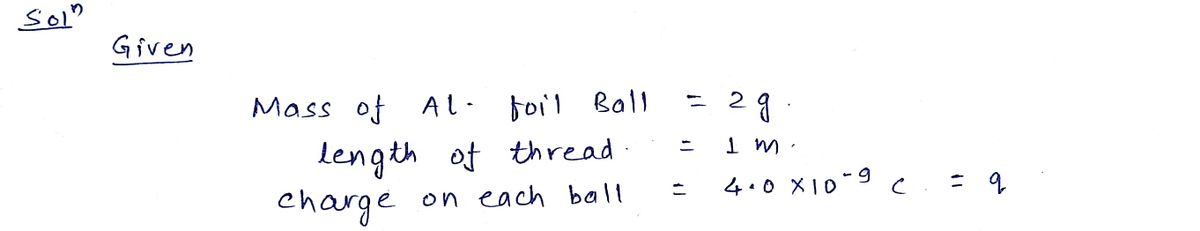 Solⁿ
Given
Mass of Al. foil Ball = 2g.
length of thread. = 1 m.
charge on each ball = 4.0 × 10⁻⁹ C. = q